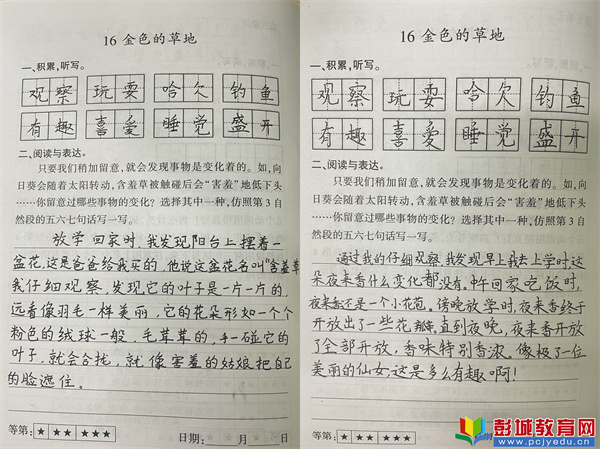 16 金色的草地
一、积累,听写。
观察 玩耍 哈欠 钓鱼
有趣 喜爱 睡觉 盛开
二、阅读与表达。
只要我们稍加留意,就会发现事物是变化着的。如,向
日葵会随着太阳转动,含羞草被触碰后会“害羞”地低下头
……你留意过哪些事物的变化?选择其中一种,仿照第3自
然段的五六七句话写一写。
放学回家时,我发现阳台上摆着一
盆花,这是爸爸给我买的,他说这盆花名叫“含羞草”
我仔细观察,发现它的叶子是一片一片的,
远看像羽毛一样美丽,它的花朵形如一个个
粉色的绒球一般,毛茸茸的,手一碰它的
叶子,就会合拢,就像害羞的姑娘把自己
的脸遮住。
等第: ★ ★★ ★★★ 日期: 月 日
16 金色的草地
一、积累,听写。
观察 玩耍 哈欠 钓鱼
有趣 喜爱 睡觉 盛开
二、阅读与表达。
只要我们稍加留意,就会发现事物是变化着的。如,向
日葵会随着太阳转动,含羞草被触碰后会“害羞”地低下头
……你留意过哪些事物的变化?选择其中一种,仿照第3自
然段的五六七句话写一写。
通过我的仔细观察,我发现早上我去上学时,这
朵夜来香什么变化都没有。中午回家吃饭时,
夜来香还是一个小花苞。傍晚放学时,夜来香终于
开放出了一些花瓣。直到夜晚,夜来香开放
了全部开放,香味特别香浓。像极了一位
美丽的仙女,这是多么有趣啊!
等第: ★ ★★ ★★★
彭城教育网
www.pcjyedu.cn